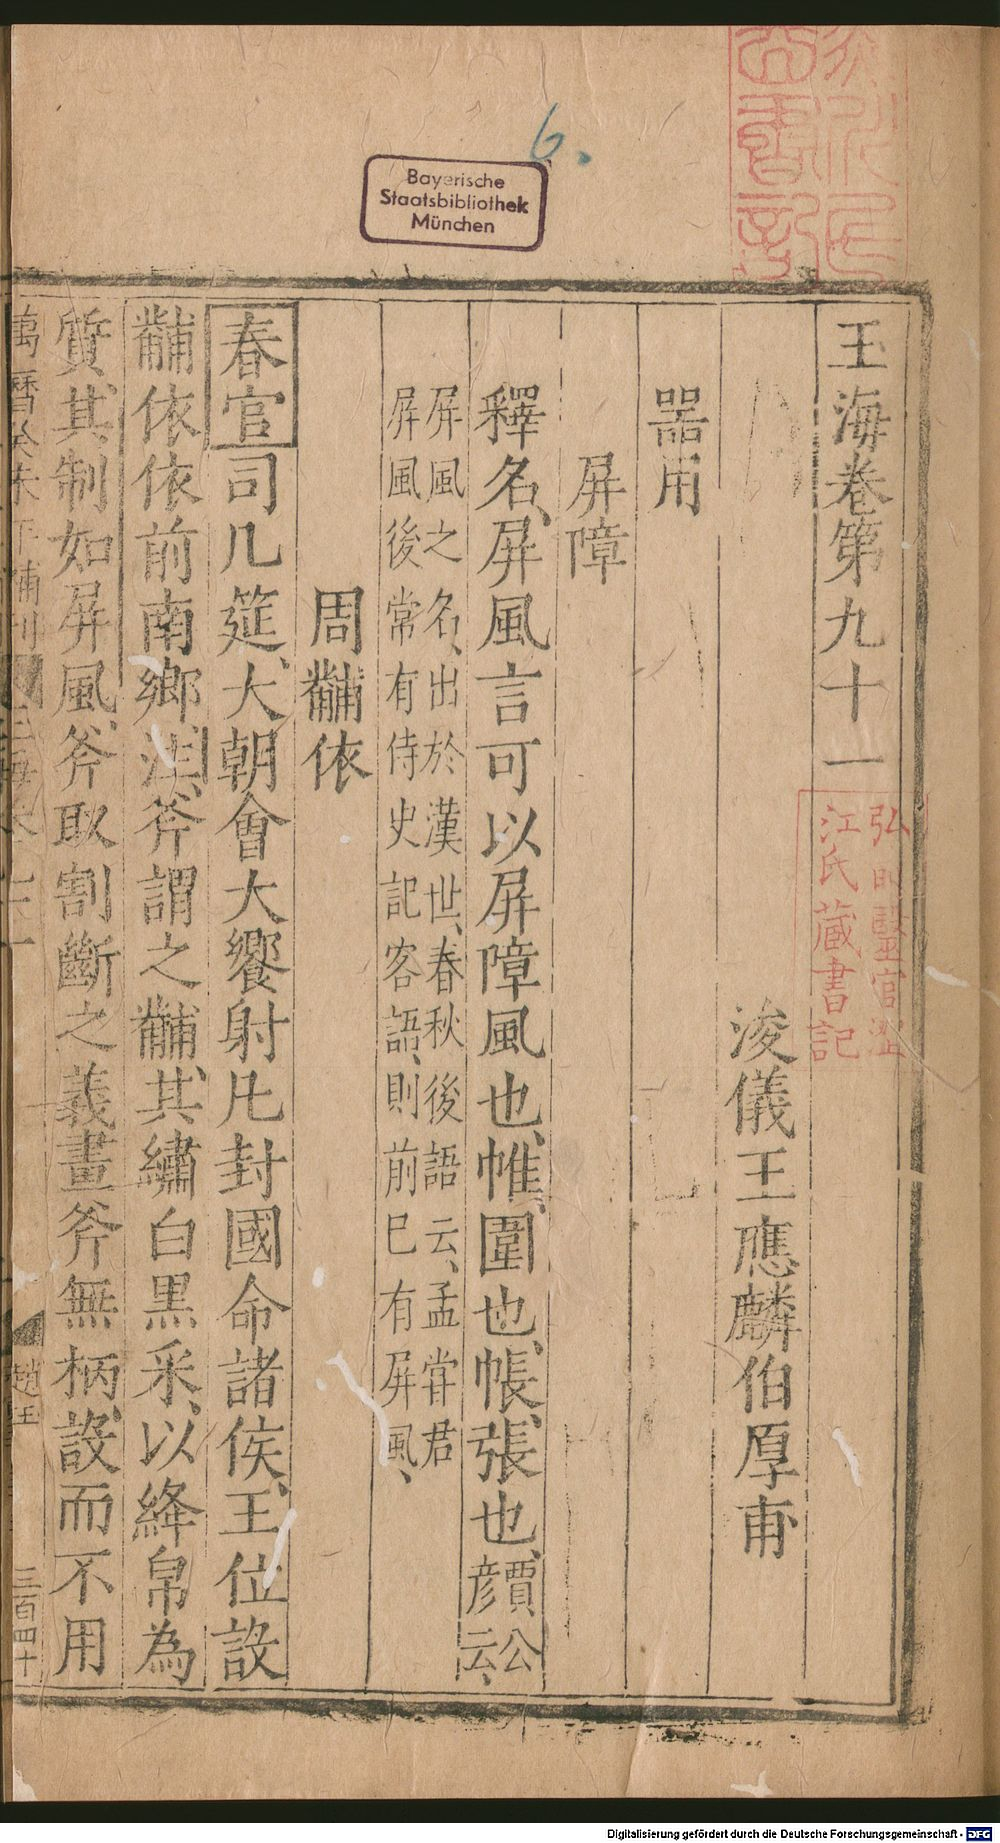 6.
Bayerische
Staatsbibliothek
München
玉海卷第九十一
浚儀王應麟伯厚甫
器用
屏障
釋名、屏風言可以屏障風也、帷、圍也、帳、張也、賈公彥云、
屏風之名、出於漢世、春秋後語云、孟甞君
屏風後常有侍史記客語、則前巳有屏風、
周黼依
春官司几筵、大朝會大饗射凡封國命諸侯、王位設
黼依依前南鄉、注、斧謂之黼、其繡白黑采、以絳帛為
質、其制如屏風、斧取割斷之義畫斧無柄、設而不用
萬曆癸未年補刊
趙王
三百四十
弘前醫官澁
江氏藏書記
Digitalisierung gefördert durch die Deutsche Forschungsgemeinschaft - DFG